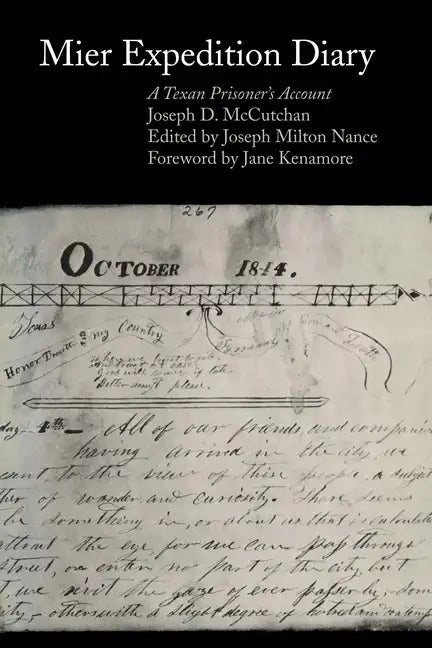 Mier Expedition Diary
A Texan Prisoner's Account
Joseph D. McCutchan
Edited by Joseph Milton Nance
Foreword by Jane Kenamore
267
OCTOBER 1844.
Texas
Honor Truth and my Country
Good will
Better must please.
day 4th All of our friends and compani
having arrived in the city, we
sent to the view of these people, a subject
ther of wonder and curiosity. There seems
be something in, or about us that is calculate
attract the eye, for we can pass through
street, or enter no part of the city, but
t, we rivit the gaze of ever passerby, som
ity, others with a slight degree of and contemp